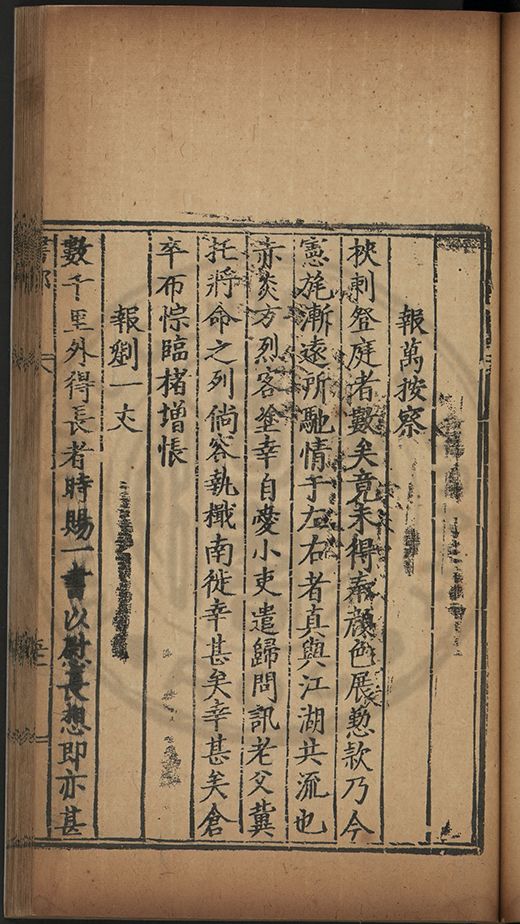 報萬按察
挾刺登庭者數矣竟未得奉顏色展懃款乃今
憲旄漸遠所馳情于左右者真與江湖共流也
赤炎方烈客塗幸自愛小吏遣歸問訊老父冀
托將命之列倘容執檝南徙幸甚矣幸甚矣倉
卒布悰臨楮增悵
報劉一丈
數千里外得長者時賜一書以慰長想即亦甚